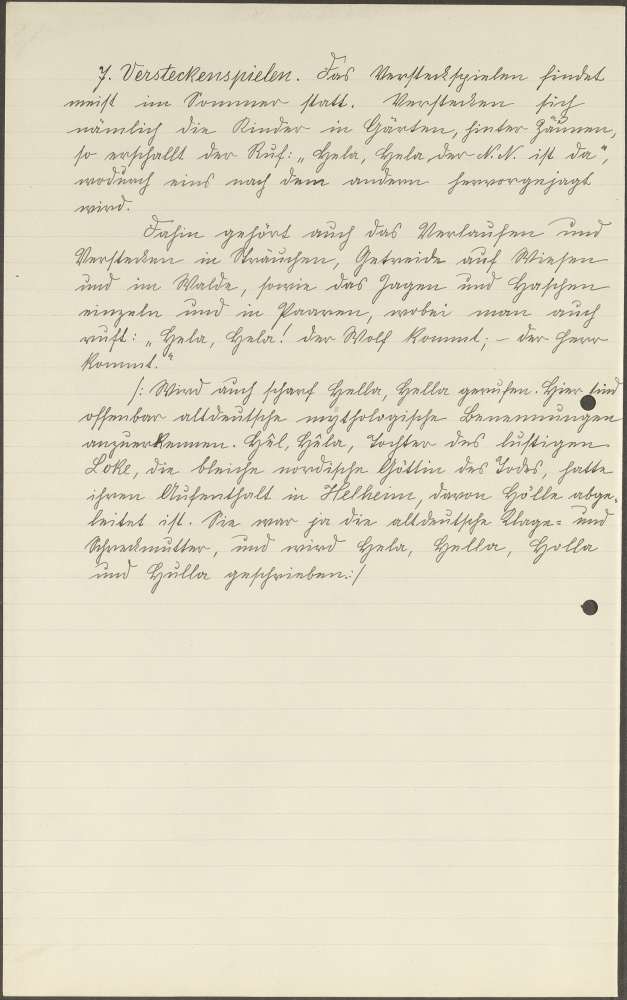 7. Versteckenspielen. Das Versteckspielen findet
meist im Sommer statt. Verstecken sich
nämlich die Kinder in Gärten, hinter Zäunen,
so erschallt der Ruf: „Hela, Hela der N. N. ist da",
wodurch eins nach dem andern hervorgejagt
wird.
Dahin gehört auch das Verlaufen und
Verstecken in Sträuchen, Getreide auf Wiesen
und im Walde, sowie das Jagen und Haschen
einzeln und in Paaren, wobei man auch
ruft: „Hela, Hela! der Wolf kommt; – der Herr
kommt."
/: Wird auch scharf Hella, Hella gerufen. Hier sind
offenbar altdeutsche mythologische Benennungen
anzuerkennen. Hêl, Hêla, Tochter des lustigen
Loke, die bleiche nordische Göttin des Todes, hatte
ihren Aufenthalt in Helheim, davon Hölle abge-
leitet ist. Sie war ja die altdeutsche Klage- und
Schreckmutter, und wird Hela, Hella, Holla
und Hulla geschrieben:/